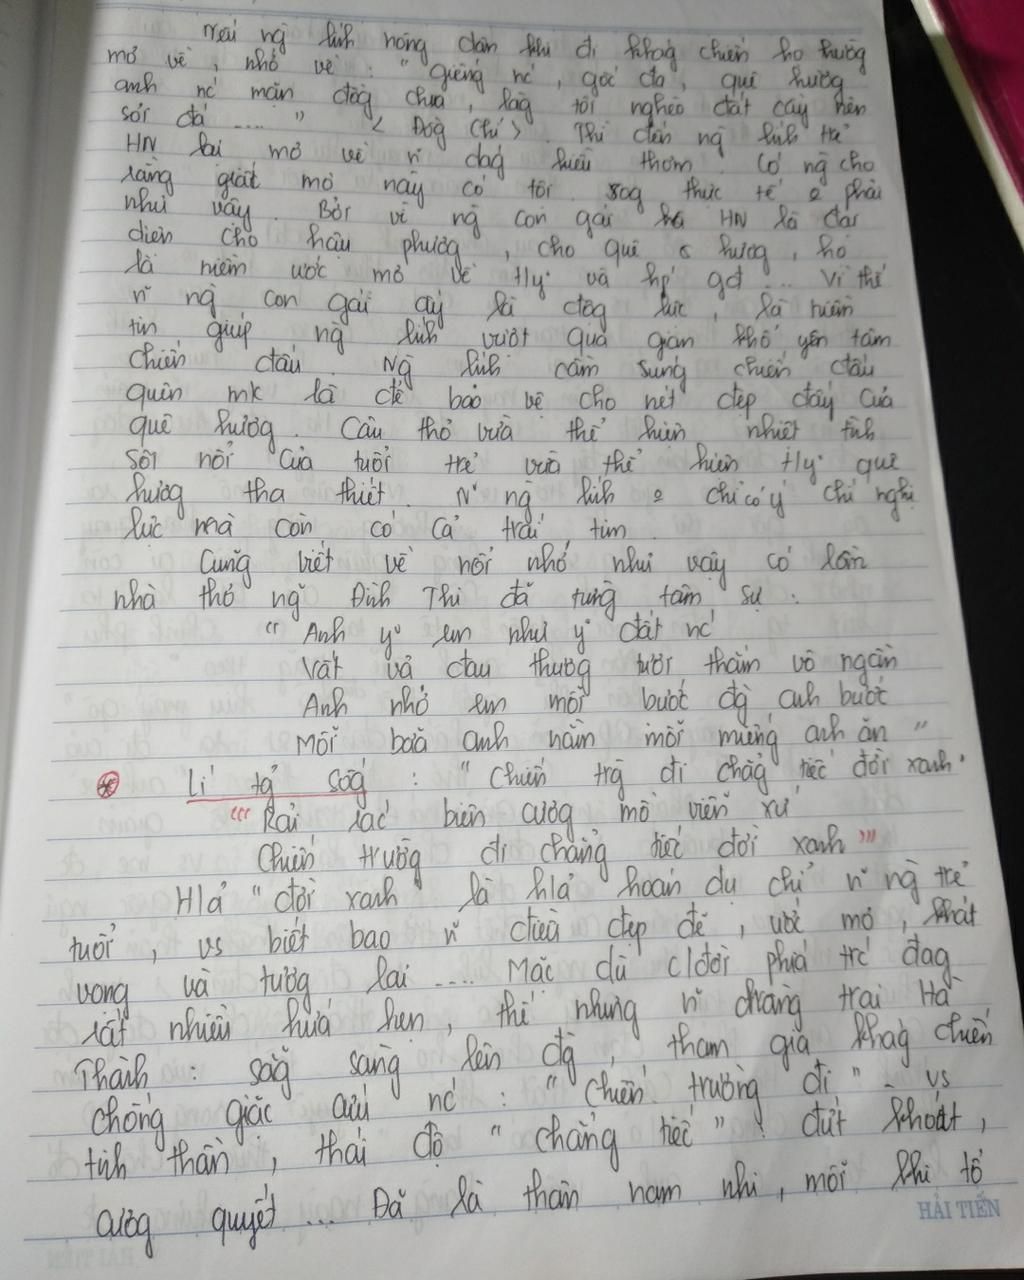 Nếu ng lính nông dân khi đi khág chiến họ thường
mơ về, nhớ về : " Giếng nc', gốc đa, quê hương
anh nc' mặn đồg chua, làg tôi nghèo đất cày nên
sỏi đá .... " < Đồg Chí >. Thì đến ng lính trẻ
HN lại mơ về n~ dág kiều thơm. Có ng cho
rằng giấc mơ này có tội sog thực tế o phải
như vậy. Bởi vì ng con gái HN là đại
diện cho hậu phương, cho quê hương, họ
là niềm ước mơ về t/y và hp' gđ ... Vì thế
n~ ng con gái ấy là độg lực, là niềm
tin giúp ng lính vượt qua gian khổ yên tâm
chiến đấu. Ng lính cầm súng chiến đấu
quên mk là để bảo vệ cho nét đẹp đấy của
quê hương. Câu thơ vừa thể hiện nhiệt tình
sôi nổi của tuổi trẻ vừa thể hiện t/y quê
hương tha thiết. N~ ng lính o chỉ có ý chí nghị
lực mà còn có cả trái tim.
Cũng viết về nỗi nhớ như vậy có lần
nhà thơ ng~ Đình Thi đã từng tâm sự :
" Anh y' em như y' đất nc'
Vất vả đau thương tươi thắm vô ngần
Anh nhớ em mỗi bước đg anh bước
Mỗi bữa anh nằm mỗi miếng anh ăn "
Lí tg sốg : " Chiến trg đi chẳg tiếc đời xanh"
" Rải rác biên cương mồ viễn xứ
Chiến trường đi chẳng tiếc đời xanh "
H/ả " đời xanh là h/ả hoán dụ chỉ n~ ng trẻ
tuổi, vs biết bao n~ điều đẹp đẽ, ước mơ, khát
vọng và tương lai .... Mặc dù c/đời phía trc' đag
rất nhiều hứa hẹn, thế nhưng n~ chàng trai Hà
Thành : sẵg sàng lên đg, tham gia khág chiến
chống giặc cứu nc' : " Chiến trường đi " - vs
tinh thần, thái độ " chẳng tiếc " : dứt khoát,
cươg quyết ... Đã là thân nam nhi, mỗi khi tổ
HẢI TIẾN